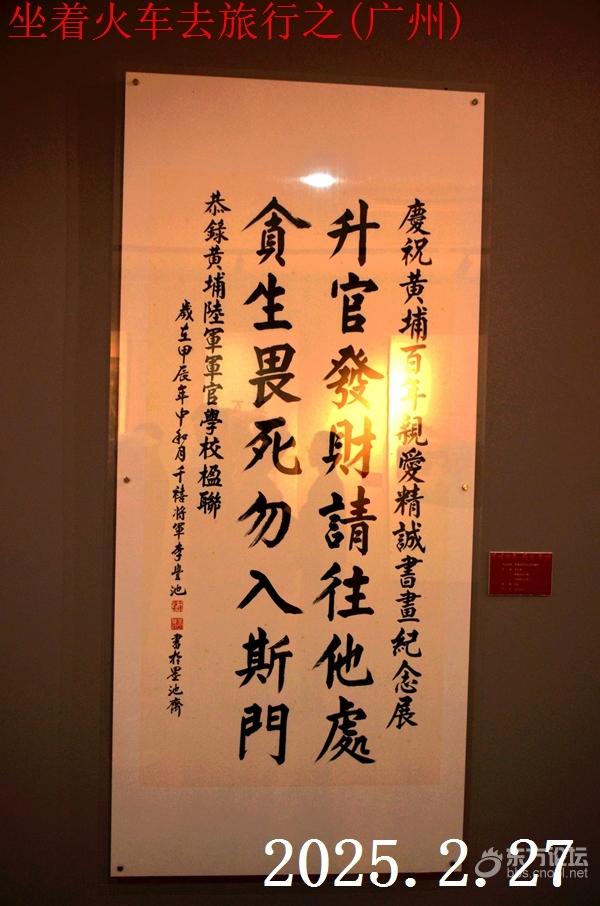 坐着火车去旅行之(广州)
慶祝黄埔百年親愛精誠書畫紀念展
升官發財請往他處
貪生畏死勿入斯門
恭錄黄埔陸軍軍官學校楹聯
歲在甲辰年中和月千禧将軍李豐池
書於墨池齋
2025.2.27
东方论坛
bbs.cnool.net